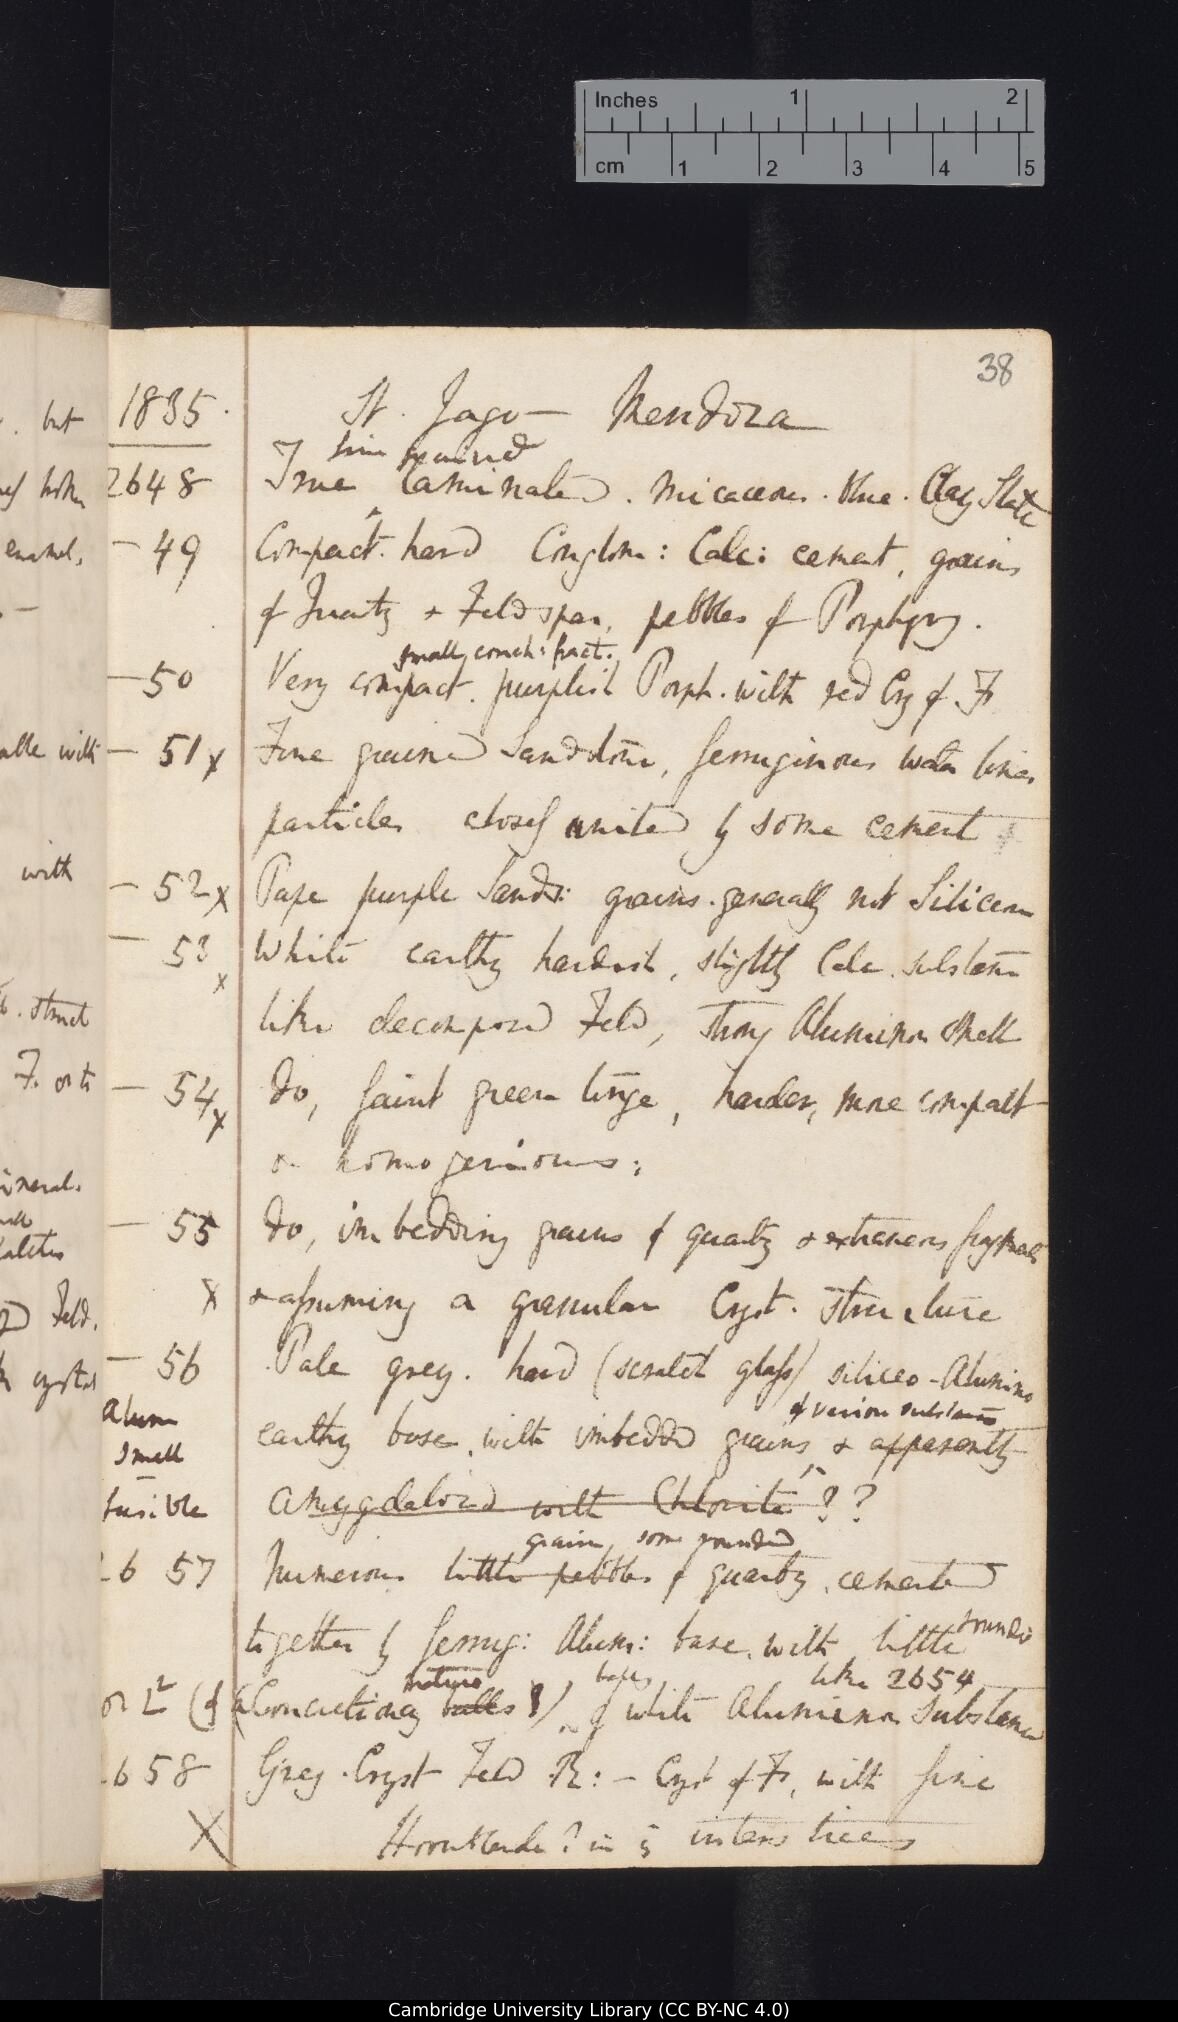 Inches 1 2
cm 1 2 3 4 5
38
1835. St. Jago — Mendoza
fine grained
2648 True laminated. micaceous. blue. Clay Slate
— 49 Compact. hard Conglom: Calc: cement, grains
of Quartz & Feldspar, pebbles of Porphyry.
small conch: fract.
— 50 Very compact. purplish Porph. with red Cry of. F
— 51 x Fine grained Sandstone, ferruginous water lines
particles closely united by some cement
— 52 x Pale purple Sands: grains. generally not Siliceous
— 53 x White earthy hardish, slightly Calc. substance
like decomposed Feld, strong Aluminous smell
— 54 x Do, faint green tinge, harder, more compact
& homogenious;
— 55 Do, imbedding grains of quartz & extraneous fragments
x & assuming a granular Cryst. structure
— 56 Pale grey. hard (scratch glass) siliceo-Alumino
of various substances
earthy base, with imbedded grains, & apparently
amygdaloid with Chlorite??
grains, some rounded
26 57 Numerous little pebbles of quartz, cemented
together by ferrug: Alum: base, with little rounded
nature balls like 2654
or L (& (Concretionary balls?) of white Aluminous Substance
2658 Grey. Cryst Feld R: — Cryst of F, with fine
X Hornblende? in interstices
. but
enamel,
with
with
. struct
F. or to
mineral.
Feld.
crystal
Alum
Smell
fusible
Cambridge University Library (CC BY-NC 4.0)